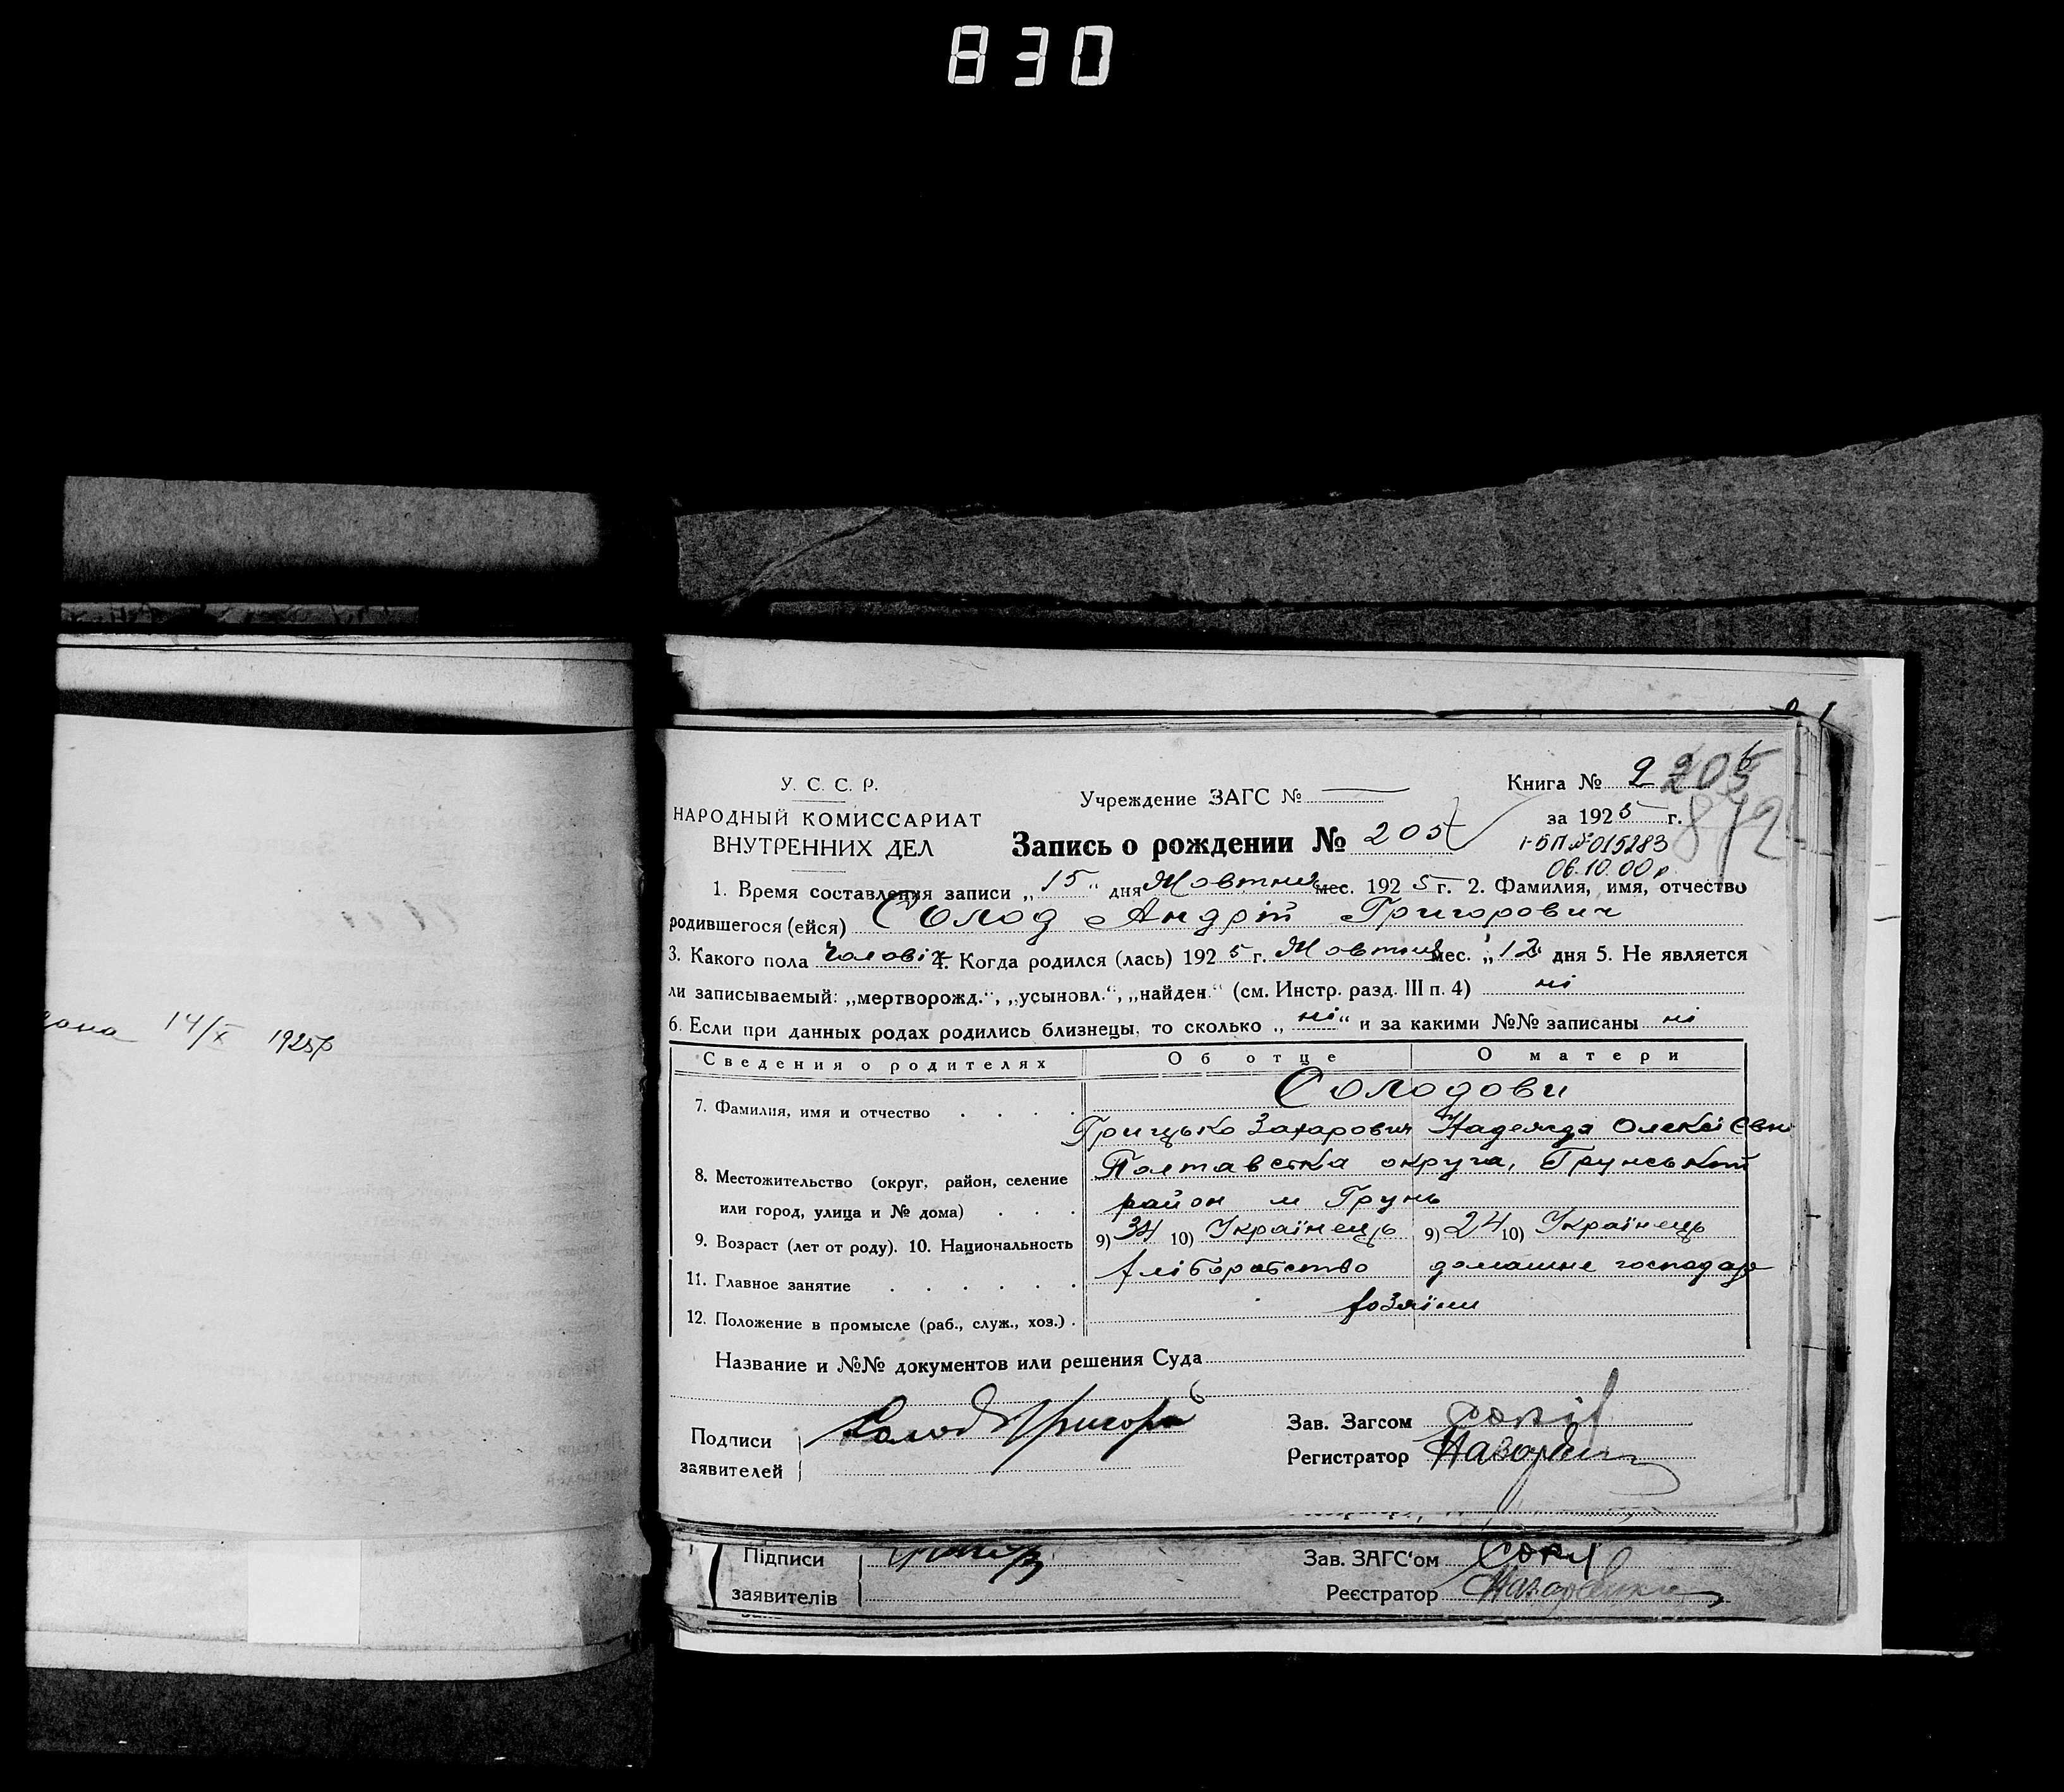 830
14/X 1925р
У. С. С. Р.
НАРОДНЫЙ КОМИССАРИАТ
ВНУТРЕННИХ ДЕЛ
Учреждение ЗАГС №
Запись о рождении № 205
Книга № 2
за 1925 г.
872
І-БП №015283
06.10.00р
1. Время составления записи „15“ дня Жовтня мес. 1925 г. 2. Фамилия, имя, отчество
родившегося (ейся) Солод Андрій Григорович
3. Какого пола чоловіч. 4. Когда родился (лась) 1925 г. Жовтня мес. „12“ дня 5. Не является
ли записываемый: „мертворожд.“, „усыновл.“, „найден.“ (см. Инстр. разд. III п. 4) ні
6. Если при данных родах родились близнецы, то сколько „ні“ и за какими №№ записаны ні
Сведения о родителях Об отце О матери
7. Фамилия, имя и отчество . . . . Солодови
Грицько Захарович Надежда Олексіевн
8. Местожительство (округ, район, селение Полтавська округа, Грунський
или город, улица и № дома) . . . район м Грунь
9. Возраст (лет от роду). 10. Национальность 9) 34 10) Українець 9) 24 10) Українець
11. Главное занятие . . . . . . хліборобство домашнє господар
12. Положение в промысле (раб., служ., хоз.) . хозяїни
Название и №№ документов или решения Суда
Подписи
заявителей
Солод Григорів
Зав. Загсом
Регистратор
Підписи
заявителів
Зав. ЗАГС'ом
Реєстратор